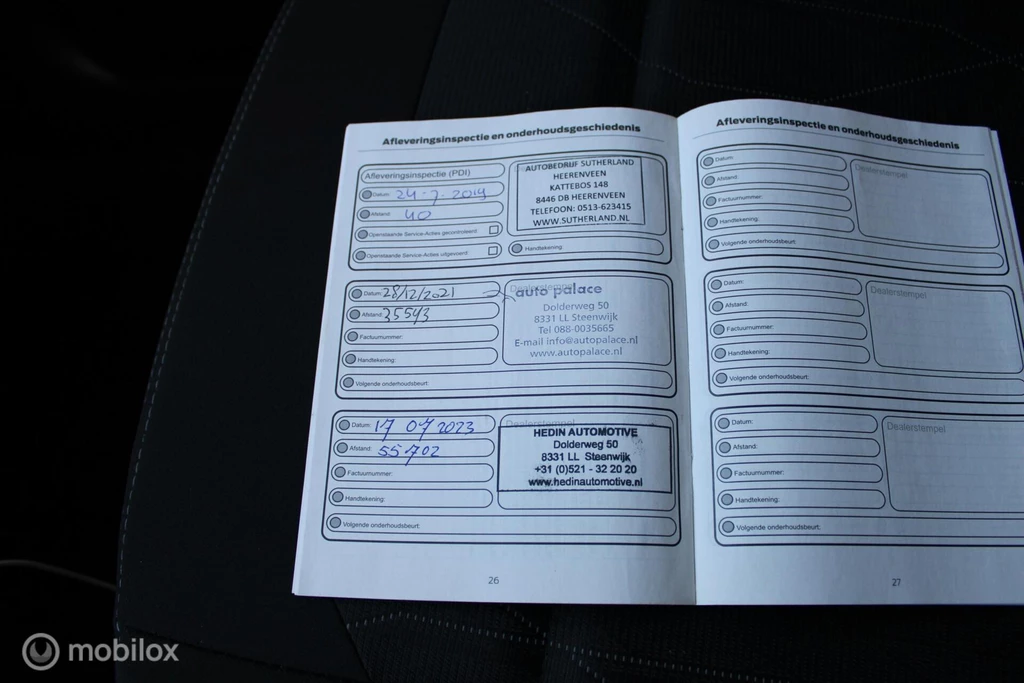 Afleveringsinspectie en onderhoudsgeschiedenis
Afleveringsinspectie (PDI)
Datum: 24-7-2019
Afstand: 40
Openstaande Service-Acties gecontroleerd:
Openstaande Service-Acties uitgevoerd:
AUTOBEDRIJF SUTHERLAND
HEERENVEEN
KATTEBOS 148
8446 DB HEERENVEEN
TELEFOON: 0513-623415
WWW.SUTHERLAND.NL
Handtekening:
Datum: 28/12/2021
Afstand: 35543
Factuurnummer:
Handtekening:
Volgende onderhoudsbeurt:
Dealerstempel
auto palace
Dolderweg 50
8331 LL Steenwijk
Tel 088-0035665
E-mail info@autopalace.nl
www.autopalace.nl
Datum: 17 07 2023
Afstand: 55702
Factuurnummer:
Handtekening:
Volgende onderhoudsbeurt:
Dealerstempel
HEDIN AUTOMOTIVE
Dolderweg 50
8331 LL Steenwijk
+31 (0)521 - 32 20 20
www.hedinautomotive.nl
26
Afleveringsinspectie en onderhoudsgeschiedenis
Datum:
Afstand:
Factuurnummer:
Handtekening:
Volgende onderhoudsbeurt:
Dealerstempel
Datum:
Afstand:
Factuurnummer:
Handtekening:
Volgende onderhoudsbeurt:
Dealerstempel
Datum:
Afstand:
Factuurnummer:
Handtekening:
Volgende onderhoudsbeurt:
Dealerstempel
27
mobilox